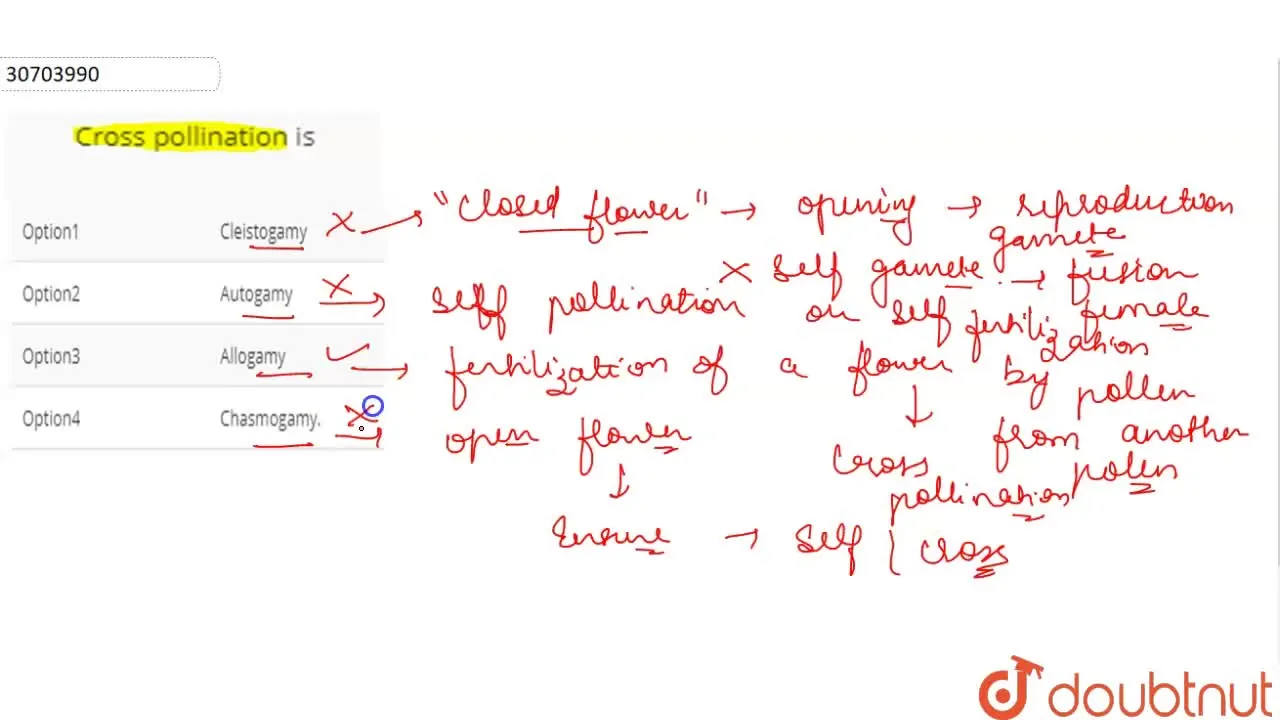 30703990
Cross pollination is
Option1 Cleistogamy X → "closed flower" → opening → reproduction
gamete
Option2 Autogamy X → self pollination or self fertilization
X self gamete → fusion
female
Option3 Allogamy ✓ → fertilization of a flower by pollen
from another
pollen
↓
cross
pollination
Option4 Chasmogamy. X → open flower
↓
Ensure → self / cross
doubtnut